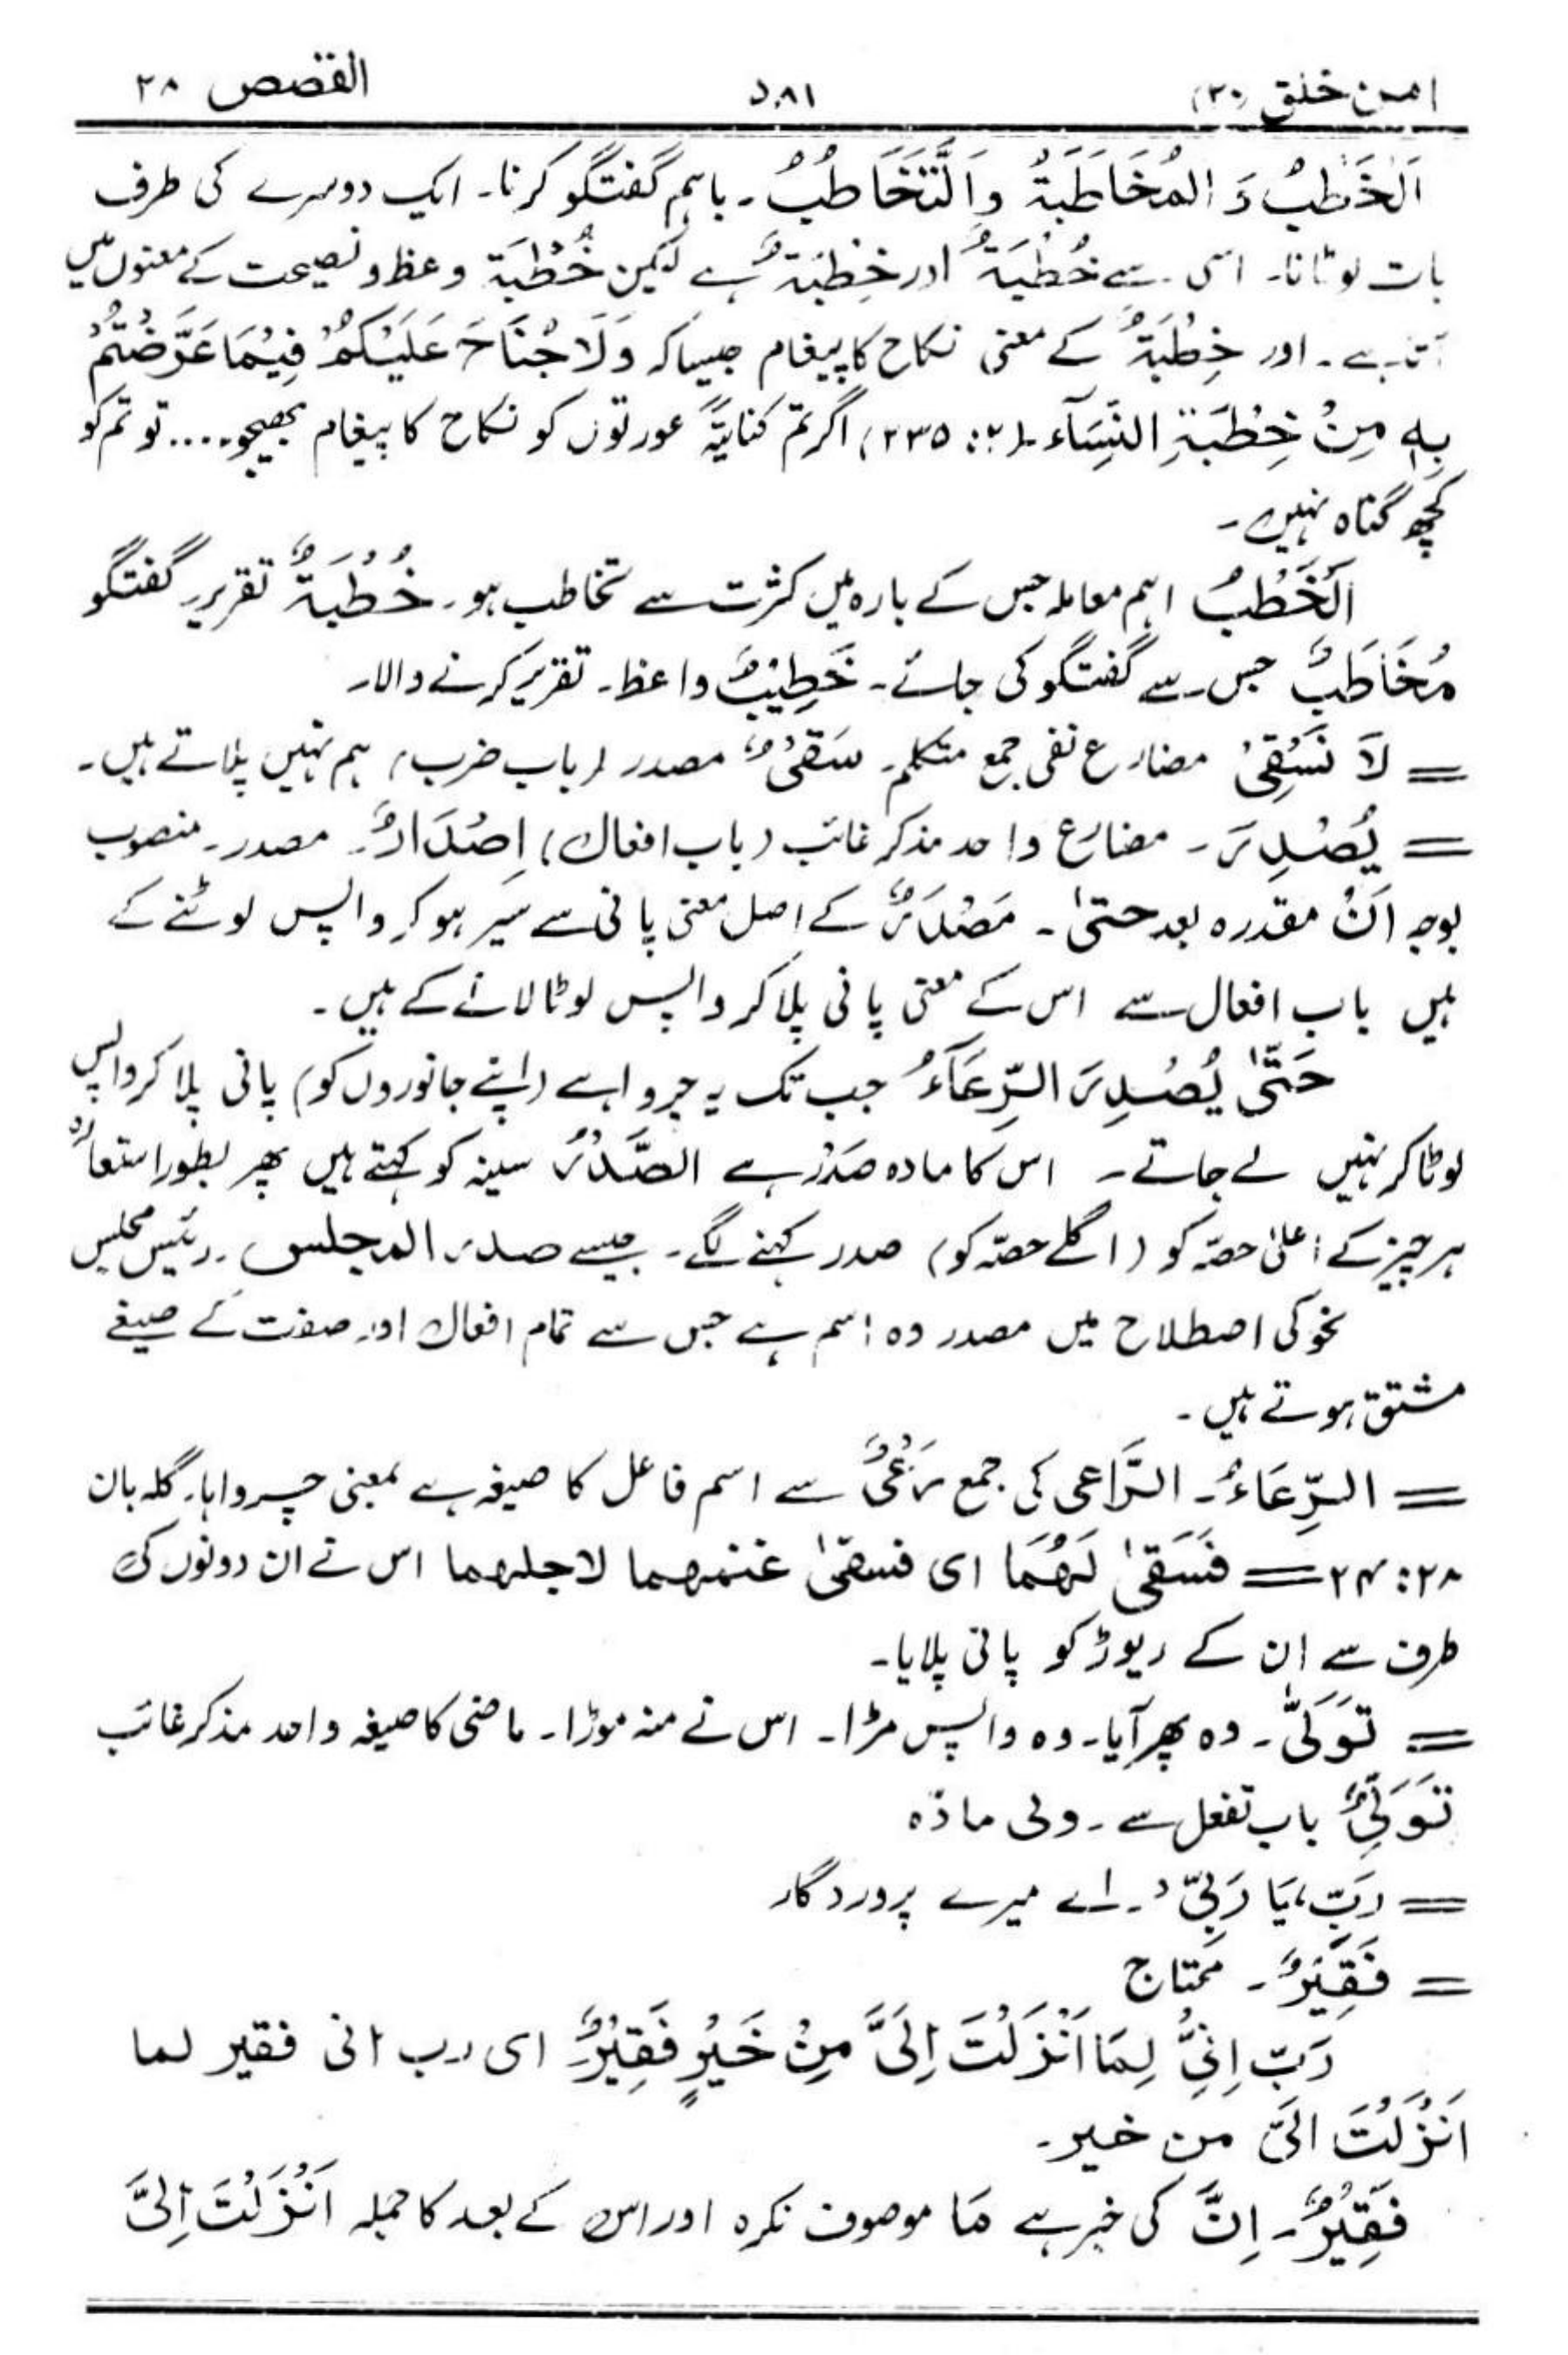 امن خلق (۲۰) ۵۸۱ القصص ۲۸
اَلْخَطْبُ وَ الْمُخَاطَبَةُ وَالتَّخَاطُبُ۔ باہم گفتگو کرنا۔ ایک دوسرے کی طرف
بات لوٹانا۔ اسی سے خُطْبَةٌ اور خِطْبَةٌ ہے لیکن خُطْبَة وعظ و نصیحت کے معنوں میں
آتا ہے۔ اور خِطْبَةٌ کے معنی نکاح کا پیغام جیسا کہ وَلَا جُنَاحَ عَلَیْکُمْ فِیْمَا عَرَّضْتُمْ
بِہٖ مِنْ خِطْبَةِ النِّسَآء۔ (۲: ۲۳۵) اگر تم کنایۃً عورتوں کو نکاح کا پیغام بھیجو.... تو تم کو
کچھ گناہ نہیں۔
اَلْخَطْبُ اہم معاملہ جس کے بارہ میں کثرت سے تخاطب ہو۔ خُطْبَةٌ تقریر، گفتگو
مُخَاطَبٌ جس سے گفتگو کی جائے۔ خَطِیْبٌ واعظ۔ تقریر کرنے والا۔
= لَا نَسْقِیْ مضارع نفی جمع متکلم۔ سَقْیٌ مصدر (باب ضرب) ہم نہیں پلاتے ہیں۔
= یُصْدِرَ۔ مضارع واحد مذکر غائب (باب افعال) اِصْدَارٌ۔ مصدر۔ منصوب
بوجہ اَنْ مقدرہ بعد حتیٰ۔ مَصْدَرٌ کے اصل معنی پانی سے سَیر ہو کر واپس لوٹنے کے
ہیں باب افعال سے اس کے معنی پانی پلا کر واپس لوٹا لانے کے ہیں۔
حَتّٰی یُصْدِرَ الرِّعَآءُ جب تک یہ چرواہے (اپنے جانوروں کو) پانی پلا کر واپس
لوٹا کر نہیں لے جاتے۔ اس کا مادہ صَدْر ہے الصَّدْرُ سینہ کو کہتے ہیں پھر بطور استعارہ
ہر چیز کے اعلیٰ حصہ کو (اگلے حصّہ کو) صدر کہنے لگے۔ جیسے صدر المجلس۔ رئیس مجلس
نحو کی اصطلاح میں مصدر وہ اسم ہے جس سے تمام افعال اور صفت کے صیغے
مشتق ہوتے ہیں۔
= الرِّعَاءُ۔ الرَّاعی کی جمع رَعْیٌ سے اسم فاعل کا صیغہ ہے بمعنی چرواہا۔ گلہ بان
۲۸: ۲۴ = فَسَقیٰ لَہُمَا ای فسقیٰ غنمہما لاجلہما اس نے ان دونوں کی
طرف سے ان کے ریوڑ کو پانی پلایا۔
= تَوَلّٰی۔ وہ پھر آیا۔ وہ واپس مڑا۔ اس نے منہ موڑا۔ ماضی کا صیغہ واحد مذکر غائب
تَوَلِّیٌ باب تفعل سے۔ ولی مادّہ
= رَبِّ، یَا رَبِّیْ۔ اے میرے پروردگار
= فَقِیْرٌ۔ محتاج
رَبِّ اِنِّیْ لِمَا اَنْزَلْتَ اِلَیَّ مِنْ خَیْرٍ فَقِیْرٌ۔ ای رب انی فقیر لما
اَنْزَلْتَ الیّ من خیر۔
فَقِیْرٌ۔ اِنَّ کی خبر ہے مَا موصوف نکرہ اور اس کے بعد کا جملہ اَنْزَلْتَ اِلَیَّ